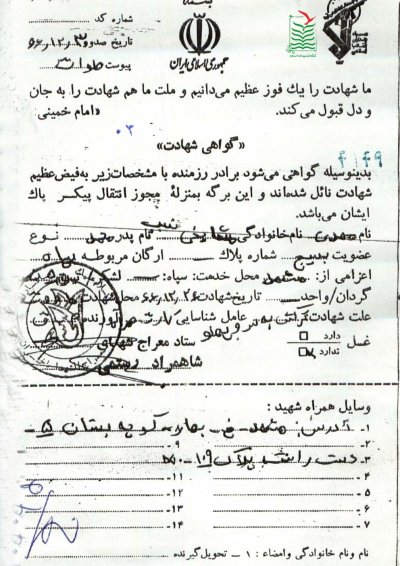 بسمه تعالی
شماره کد
تاریخ صدور ۶۶،۱۲،۳
پیوست
جمهوری اسلامی ایران
ما شهادت را یك فوز عظیم می‌دانیم و ملت ما هم شهادت را به جان
و دل قبول می‌کند. «امام خمینی»
۰۳
«گواهی شهادت»
۴۱۴۹
بدینوسیله گواهی می‌شود برادر رزمنده با مشخصات زیر به فیض عظیم
شهادت نائل شده‌اند و این برگه بمنزلهٔ مجوز انتقال پیکر پاك
ایشان می‌باشد.
نام مهدی نام خانوادگی نام پدر محمد نوع
عضویت بسیج شماره پلاك ارگان مربوطه سپاه
اعزامی از: مشهد محل خدمت: سپاه: لشگر
گردان/واحد تاریخ شهادت ۶۶،۱۲،۲۶ محل شهادت
علت شهادت ترکش به سر و پهلو عامل شناسایی کارت آورنده
غسل دارد
ندارد
ستاد معراج شهدای
شاهمراد رستمی
وسایل همراه شهید:
۱ـ آدرس: مشهد خ بهار کوچه بستان ۵ ۸ـ
۲ـ ۹ـ
۳ـ دست راست پلاک ۱۰۹ ۱۰ـ
۴ـ ۱۱ـ
۵ـ ۱۲ـ
۶ـ ۱۳ـ
۷ـ ۱۴ـ
نام و نام خانوادگی و امضاء: ۱ ـ تحویل گیرنده